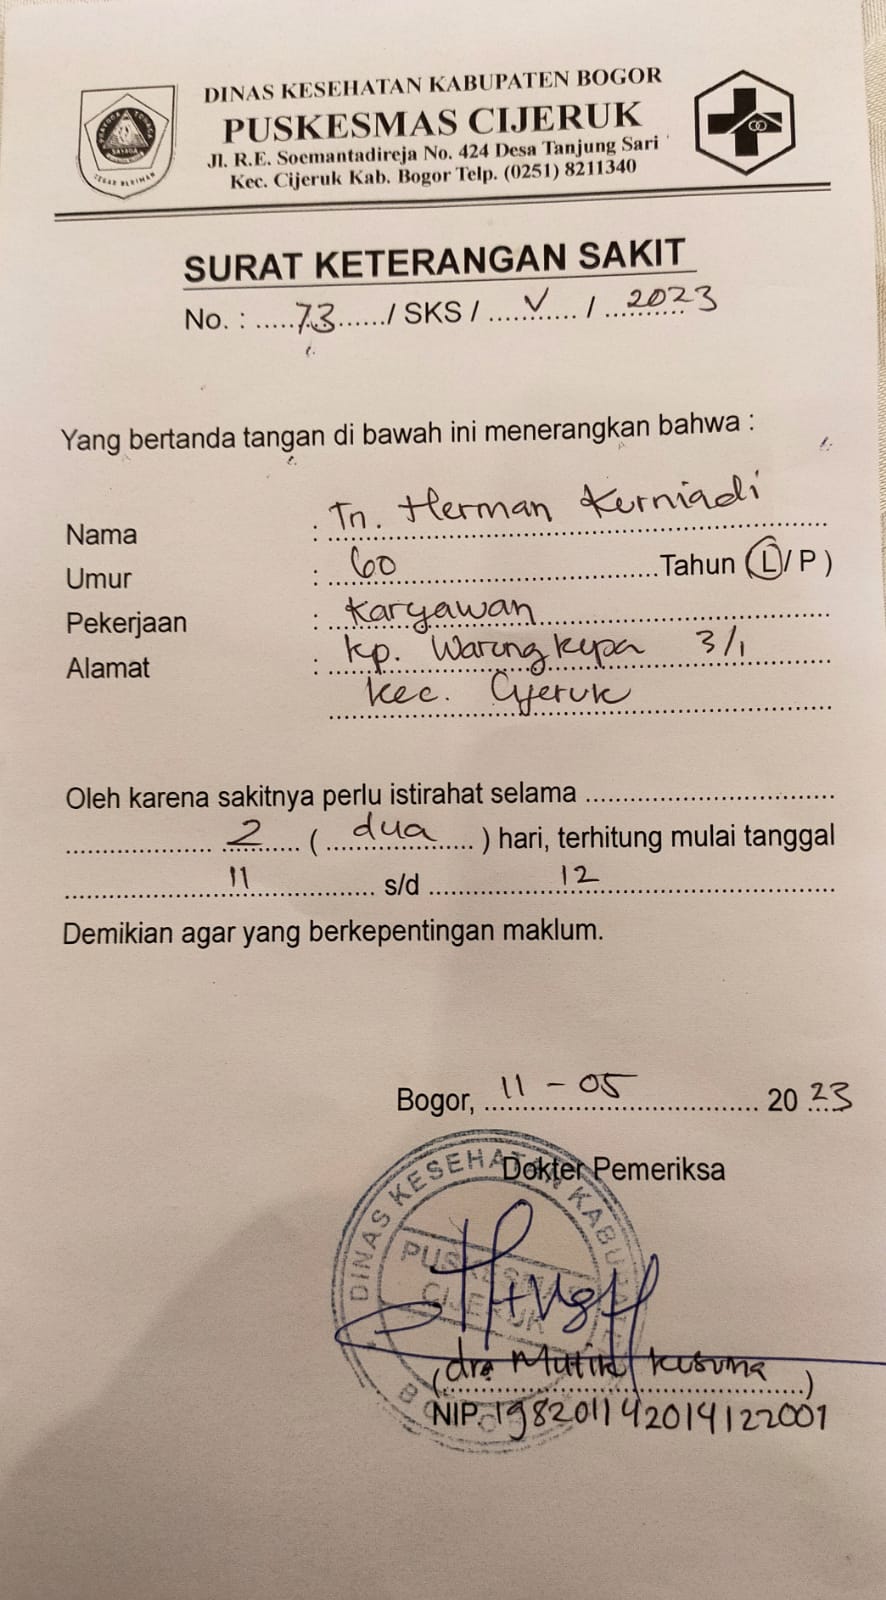 DINAS KESEHATAN KABUPATEN BOGOR
PUSKESMAS CIJERUK
Jl. R.E. Soemantadireja No. 424 Desa Tanjung Sari
Kec. Cijeruk Kab. Bogor Telp. (0251) 8211340
TEGAR BERIMAN
SURAT KETERANGAN SAKIT
No. : .....73....../ SKS / ....V..... / ...2023...
Yang bertanda tangan di bawah ini menerangkan bahwa :
Nama : Tn. Herman Kurniadi
Umur : 60 Tahun (L/ P )
Pekerjaan : Karyawan
Alamat : Kp. Warungkupa 3/1
Kec. Cijeruk
Oleh karena sakitnya perlu istirahat selama ..................................
..................... 2 ( dua ) hari, terhitung mulai tanggal
11 s/d 12
Demikian agar yang berkepentingan maklum.
Bogor, 11 - 05 2023
Dokter Pemeriksa
DINAS KESEHATAN KABUPATEN
PUSKESMAS
CIJERUK
BOGOR
(dr. Mutik Kusuma)
NIP. 198201142014122001